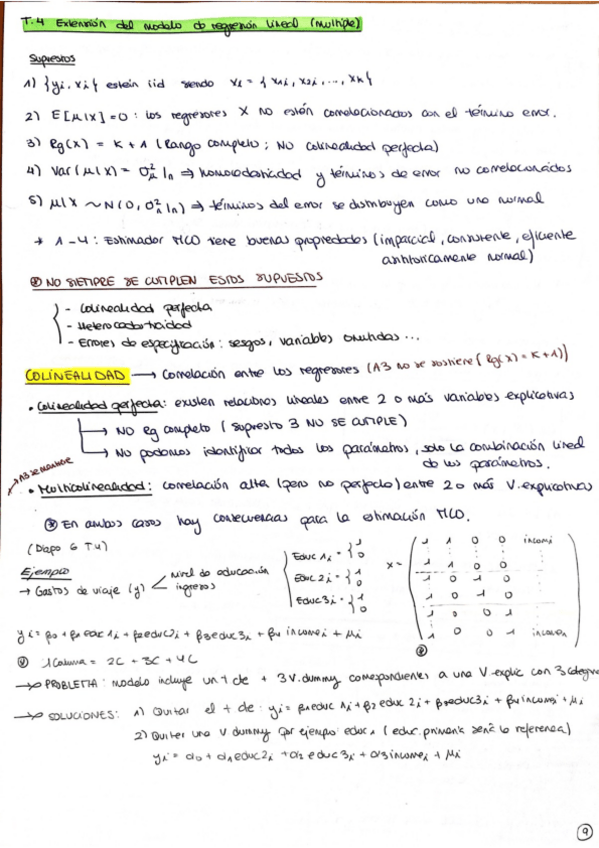 T.4 Extensión del modelo de regresión lineal (multiple)
Supuestos
1) {yi, xi} están iid siendo xi = {x1i, x2i, ..., xk}
2) E[μ|X] = 0 : los regresores X no están correlacionados con el término error.
3) Rg(X) = K + 1 (Rango completo; NO colinealidad perfecta)
4) Var(μ|X) = σ²μ In ⇒ homocedasticidad y términos de error no correlacionados
5) μ|X ~ N(0, σ²μ In) ⇒ términos del error se distribuyen como una normal
→ 1-4: Estimador MCO tiene buenas propiedades (imparcial, consistente, eficiente
asintóticamente normal)
NO SIEMPRE SE CUMPLEN ESTOS SUPUESTOS
- Colinealidad perfecta
- Heterocedasticidad
- Errores de especificación: sesgos, variables omitidas...
COLINEALIDAD → Correlación entre los regresores (A3 no se sostiene (Rg(x) = K+1))
• Colinealidad perfecta: existen relaciones lineales entre 2 o más variables explicativas
→ NO Rg completo (supuesto 3 NO SE CUMPLE)
→ No podemos identificar todos los parámetros, solo la combinación lineal
de los parámetros.
→ A3 se mantiene
• Multicolinealidad: correlación alta (pero no perfecta) entre 2 o más V. explicativas
En ambos casos hay consecuencias para la estimación MCO.
(Diapo 6 T4)
Ejemplo
→ Gastos de viaje (y) < nivel de educación
ingresos
Educ 1i = { 1 0
Educ 2i = { 1 0
Educ 3i = { 1 0
X =
1 1 0 0 incomi
1 1 0 0
1 0 1 0
1 0 1 0
1 0 0 1
1 0 0 1 incomen
yi = β0 + β1educ1i + β2educ2i + β3educ3i + β4 incomei + μi
1 Columna = 2C + 3C + 4C
→ PROBLEMA: modelo incluye un t de + 3 V. dummy correspondientes a una V. explic con 3
→ SOLUCIONES: 1) Quitar el t de: yi = β1educ 1i + β2 educ 2i + β3educ3i + β4 incomei + μi
2) Quitar una V dummy por ejemplo: educ1 (educ. primaria será la referencia)
yi = α0 + α1educ2i + α2 educ3i + α3incomei + μi
9